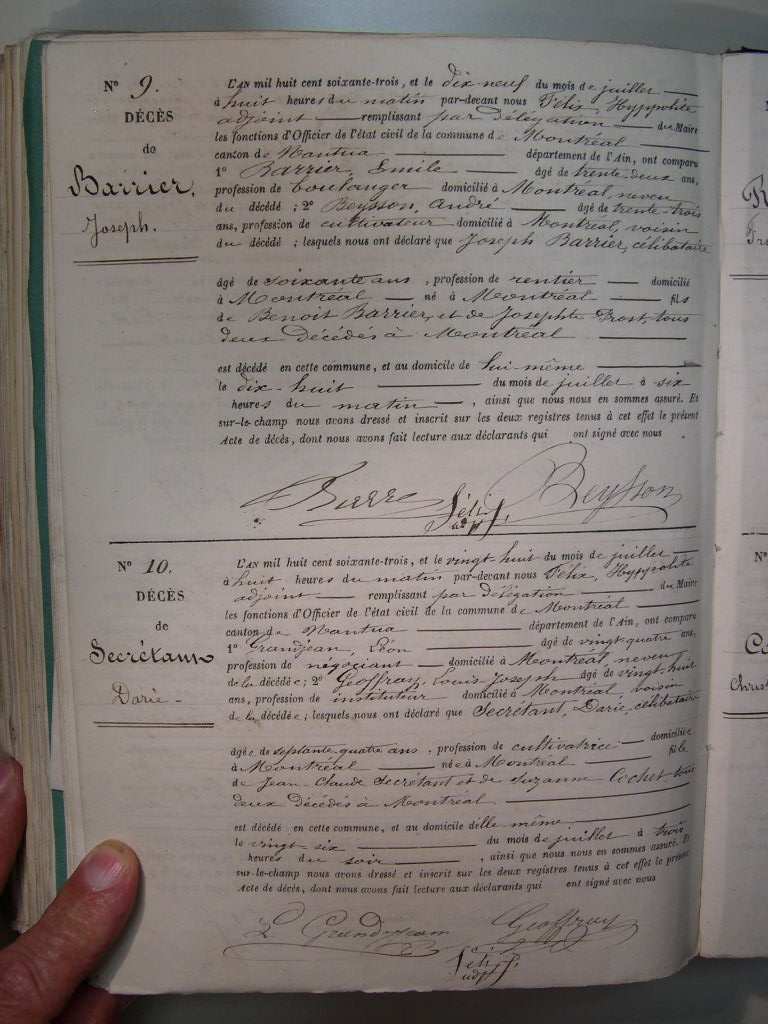 N° 9.
DÉCÈS
de
Barrier,
Joseph.
L'AN mil huit cent soixante-trois, et le dix-neuf du mois de juillet
à huit heures du matin par-devant nous Félix, Hyppolite
adjoint remplissant par délégation du Maire
les fonctions d'Officier de l'état civil de la commune de Montréal
canton de Nantua département de l'Ain, ont comparu
1° Barrier, Emile âgé de trente-deux ans,
profession de boulanger domicilié à Montréal, neveu
du décédé ; 2° Beysson, André âgé de trente-trois
ans, profession de cultivateur domicilié à Montréal, voisin
du décédé ; lesquels nous ont déclaré que Joseph Barrier, célibataire
âgé de soixante ans, profession de rentier domicilié
à Montréal né à Montréal fils
de Benoit Barrier, et de Josephte Prost, tous
deux décédés à Montréal
est décédé en cette commune, et au domicile de lui-même
le dix-huit du mois de juillet à six
heures du matin, ainsi que nous nous en sommes assuré. Et
sur-le-champ nous avons dressé et inscrit sur les deux registres tenus à cet effet le présent
Acte de décès, dont nous avons fait lecture aux déclarants qui ont signé avec nous
Beysson
N° 10.
DÉCÈS
de
Secrétant
Darie
L'AN mil huit cent soixante-trois, et le vingt-huit du mois de juillet
à huit heures du matin par-devant nous Félix, Hyppolite
adjoint remplissant par délégation du Maire
les fonctions d'Officier de l'état civil de la commune de Montréal
canton de Nantua département de l'Ain, ont comparu
1° Grandjean, Léon âgé de vingt-quatre ans,
profession de négociant domicilié à Montréal, neveu
de la décédée ; 2° Geoffray, Louis-Joseph âgé de vingt-huit
ans, profession de instituteur domicilié à Montréal, voisin
de la décédée ; lesquels nous ont déclaré que Secrétant, Darie, célibataire
âgée de septante quatre ans, profession de cultivatrice domiciliée
à Montréal née à Montréal fille
de Jean-Claude Secrétant et de Suzanne Cochet tous
deux décédés à Montréal
est décédée en cette commune, et au domicile d'elle même
le vingt-six du mois de juillet à trois
heures du soir, ainsi que nous nous en sommes assuré. Et
sur-le-champ nous avons dressé et inscrit sur les deux registres tenus à cet effet le présent
Acte de décès, dont nous avons fait lecture aux déclarants qui ont signé avec nous
L Grandjean Geoffray